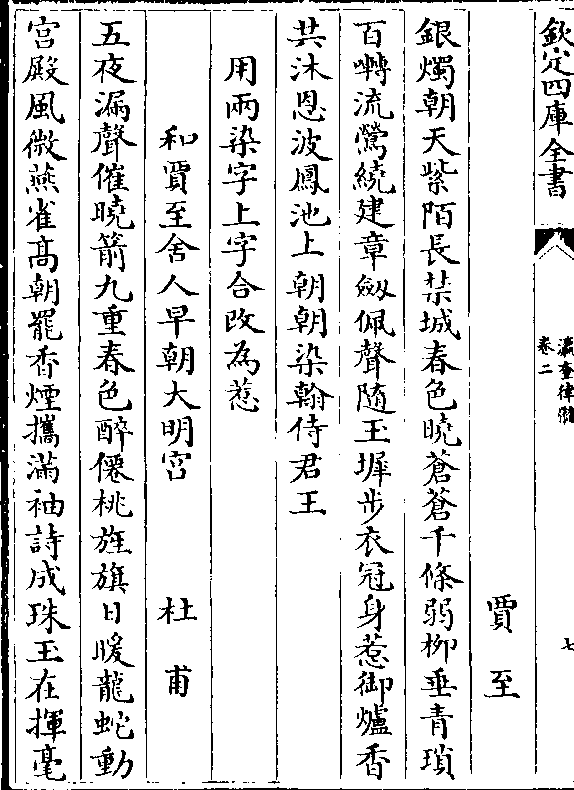 欽定四庫全書
瀛奎律髓
卷二
七
賈至
銀燭朝天紫陌長禁城春色曉蒼蒼千條弱柳垂青瑣
百囀流鶯繞建章劔佩聲隨玉墀步衣冠身惹御爐香
共沐恩波鳳池上朝朝染翰侍君王
用兩染字上字合改為惹
和賈至舍人早朝大明宫
杜甫
五夜漏聲催曉箭九重春色醉僊桃旌旗日暖龍蛇動
宫殿風微燕雀髙朝罷香煙攜滿袖詩成珠玉在揮毫